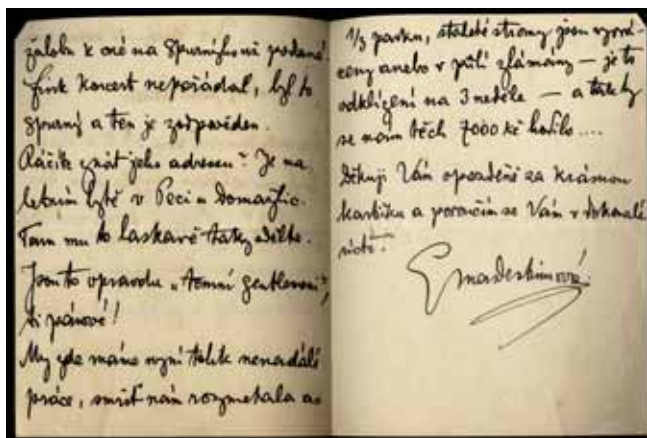 žalobu k oné na Spurného už podané.
Fink koncert nepořádal, byl to
Spurný a ten je zodpověden.
Ráčíte znát jeho adresu? Je na
letním bytě v Peci u Domažlic.
Tam mu to laskavě taky sdělte.
Jsou to opravdu „temní gentlemani",
ti pánové!
My zde máme nyní tolik nenadálé
práce, smršť nám rozmetala as
1/3 parku, staleté stromy jsou vyvrá-
ceny anebo v půli zlámány — je to
odklízení na 3 neděle — a tak by
se nám těch 7000 kč hodilo ....
Děkuji Vám opožděně za krásnou
kartičku a poroučím se Vám v dokonalé
úctě.
Ema Destinnová.